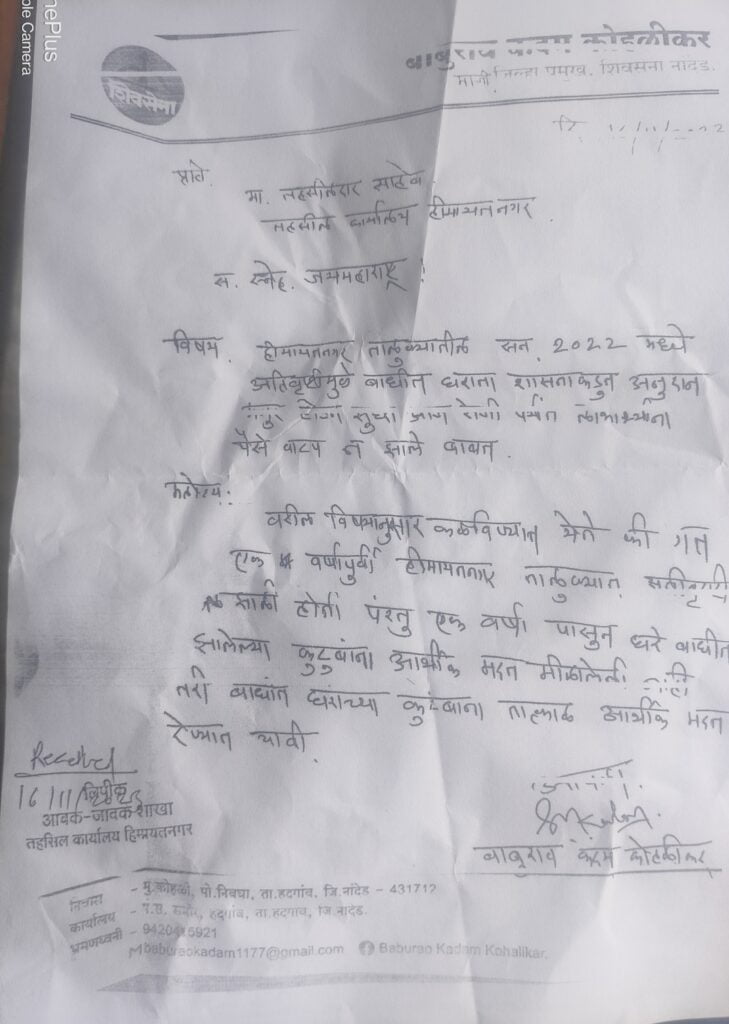 nePlus
ple Camera
शिवसेना
बाबुराव कदम कोहळीकर
माजी जिल्हा प्रमुख, शिवसेना नांदेड.
दि
प्रति.
मा. तहसीलदार साहेब
तहसील कार्यालय हीमायतनगर
स. स्नेह. जयमहाराष्ट्र !
विषय. हीमायतनगर तालुक्यातील सन. 2022 मध्ये
अतिवृष्टीमुळे बाधीत घरांना शासनाकडुन अनुदान
सुध्दा पर्यंत लाभार्थ्यांना
पैसे वाटप न झाले बाबत.
महोदय:
वरील विषयानुसार कळविण्यात येते की गत
एक वर्षापुर्वी हीमायतनगर तालुक्यात
झाली होती परंतु एक वर्षा पासुन घरे बाधीत
झालेल्या कुटुबांना आर्थीक मदत मीळालेली नाही
तरी बाधीत घरांच्या कुटंबाना तात्काळ आर्थीक मदत
देण्यात यावी.
Received
16/11/
लिपीक
आवक-जावक शाखा
तहसिल कार्यालय हिमायतनगर
बाबुराव कदम कोहळीकर
निवास - मु.कोहळी, पो.निवघा, ता.हदगांव, जि.नांदेड - 431712
कार्यालय - हदगांव, ता.हदगाव, जि.नांदेड.
भ्रमणध्वनी -
baburaokadam1177@gmail.com Baburao Kadam Kohalikar.